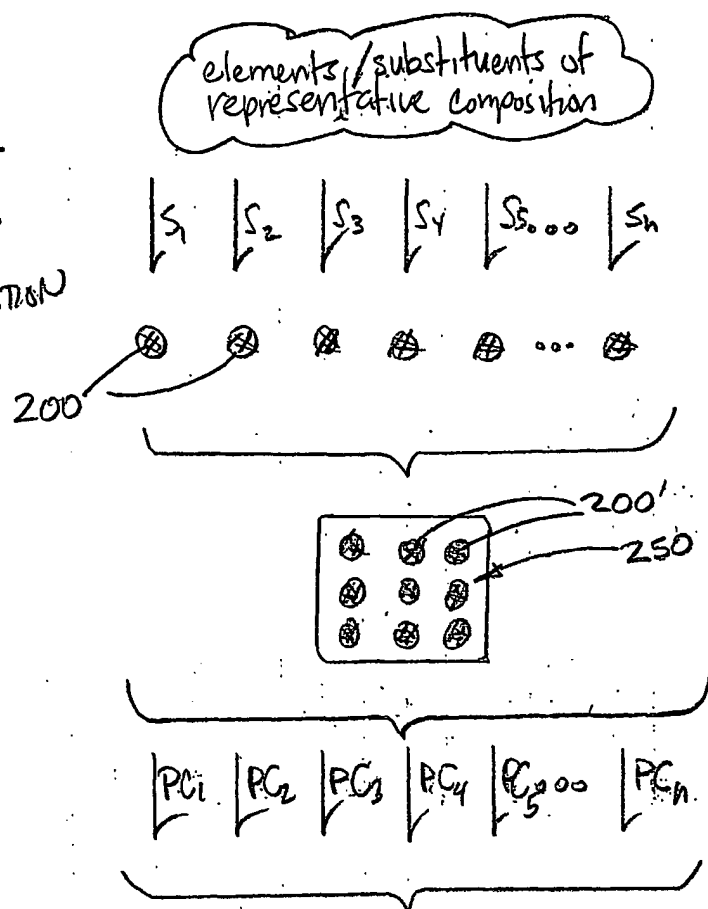 elements/substituents of
representative composition
S1 S2 S3 S4 S5 ... Sn
200
200'
250
PC1 PC2 PC3 PC4 PC5 ... PCn